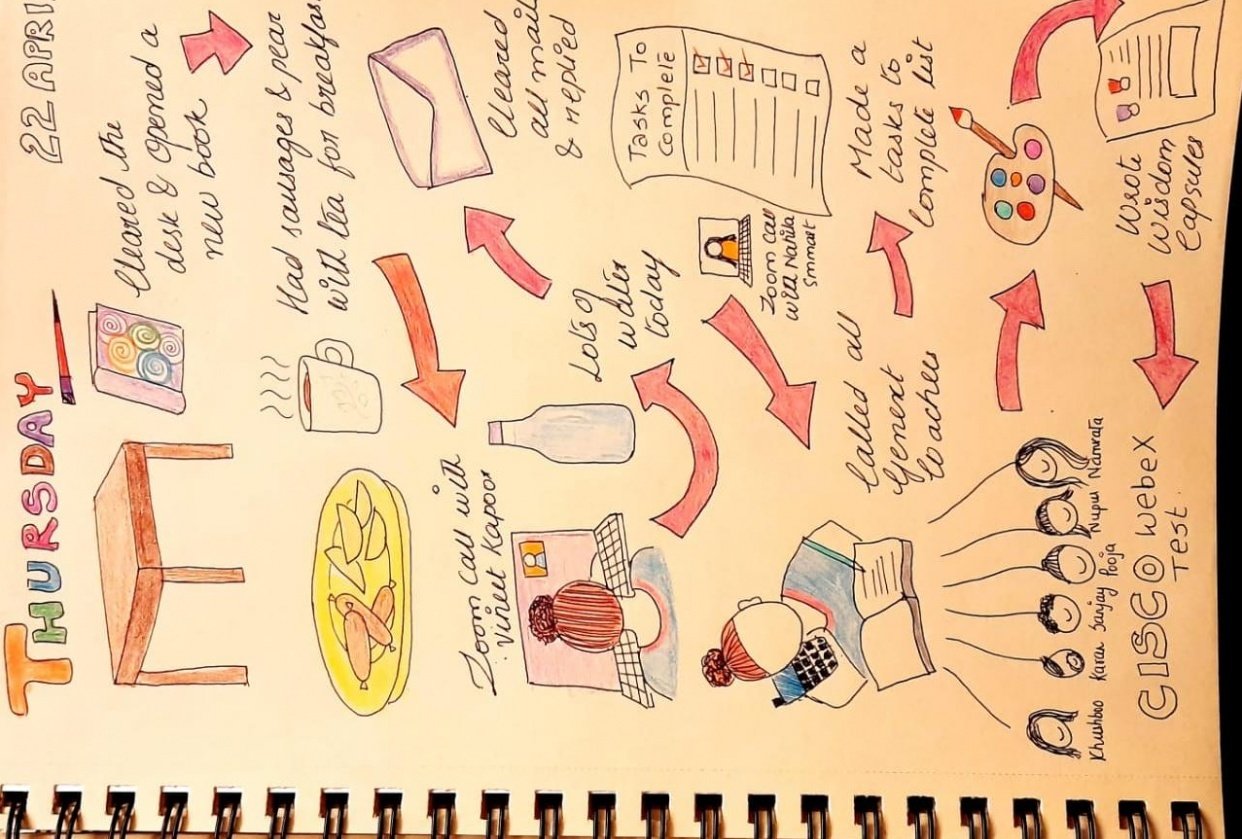 THURSDAY
22 APRIL
Cleared the
desk & opened a
new book
Had sausages & pear
with tea for breakfast
Zoom Call with
Vineet Kapoor
Lots of
water
today
Cleared
all mail
& replied
Tasks To
Complete
Zoom Call
with Nahila
Smmart
Called all
Genext
teachers
Made a
tasks to
complete list
Khushboo Karan Sanjay Pooja Nupur Namrata
Wrote
Wisdom
Capsules
CISCO Webex
Test